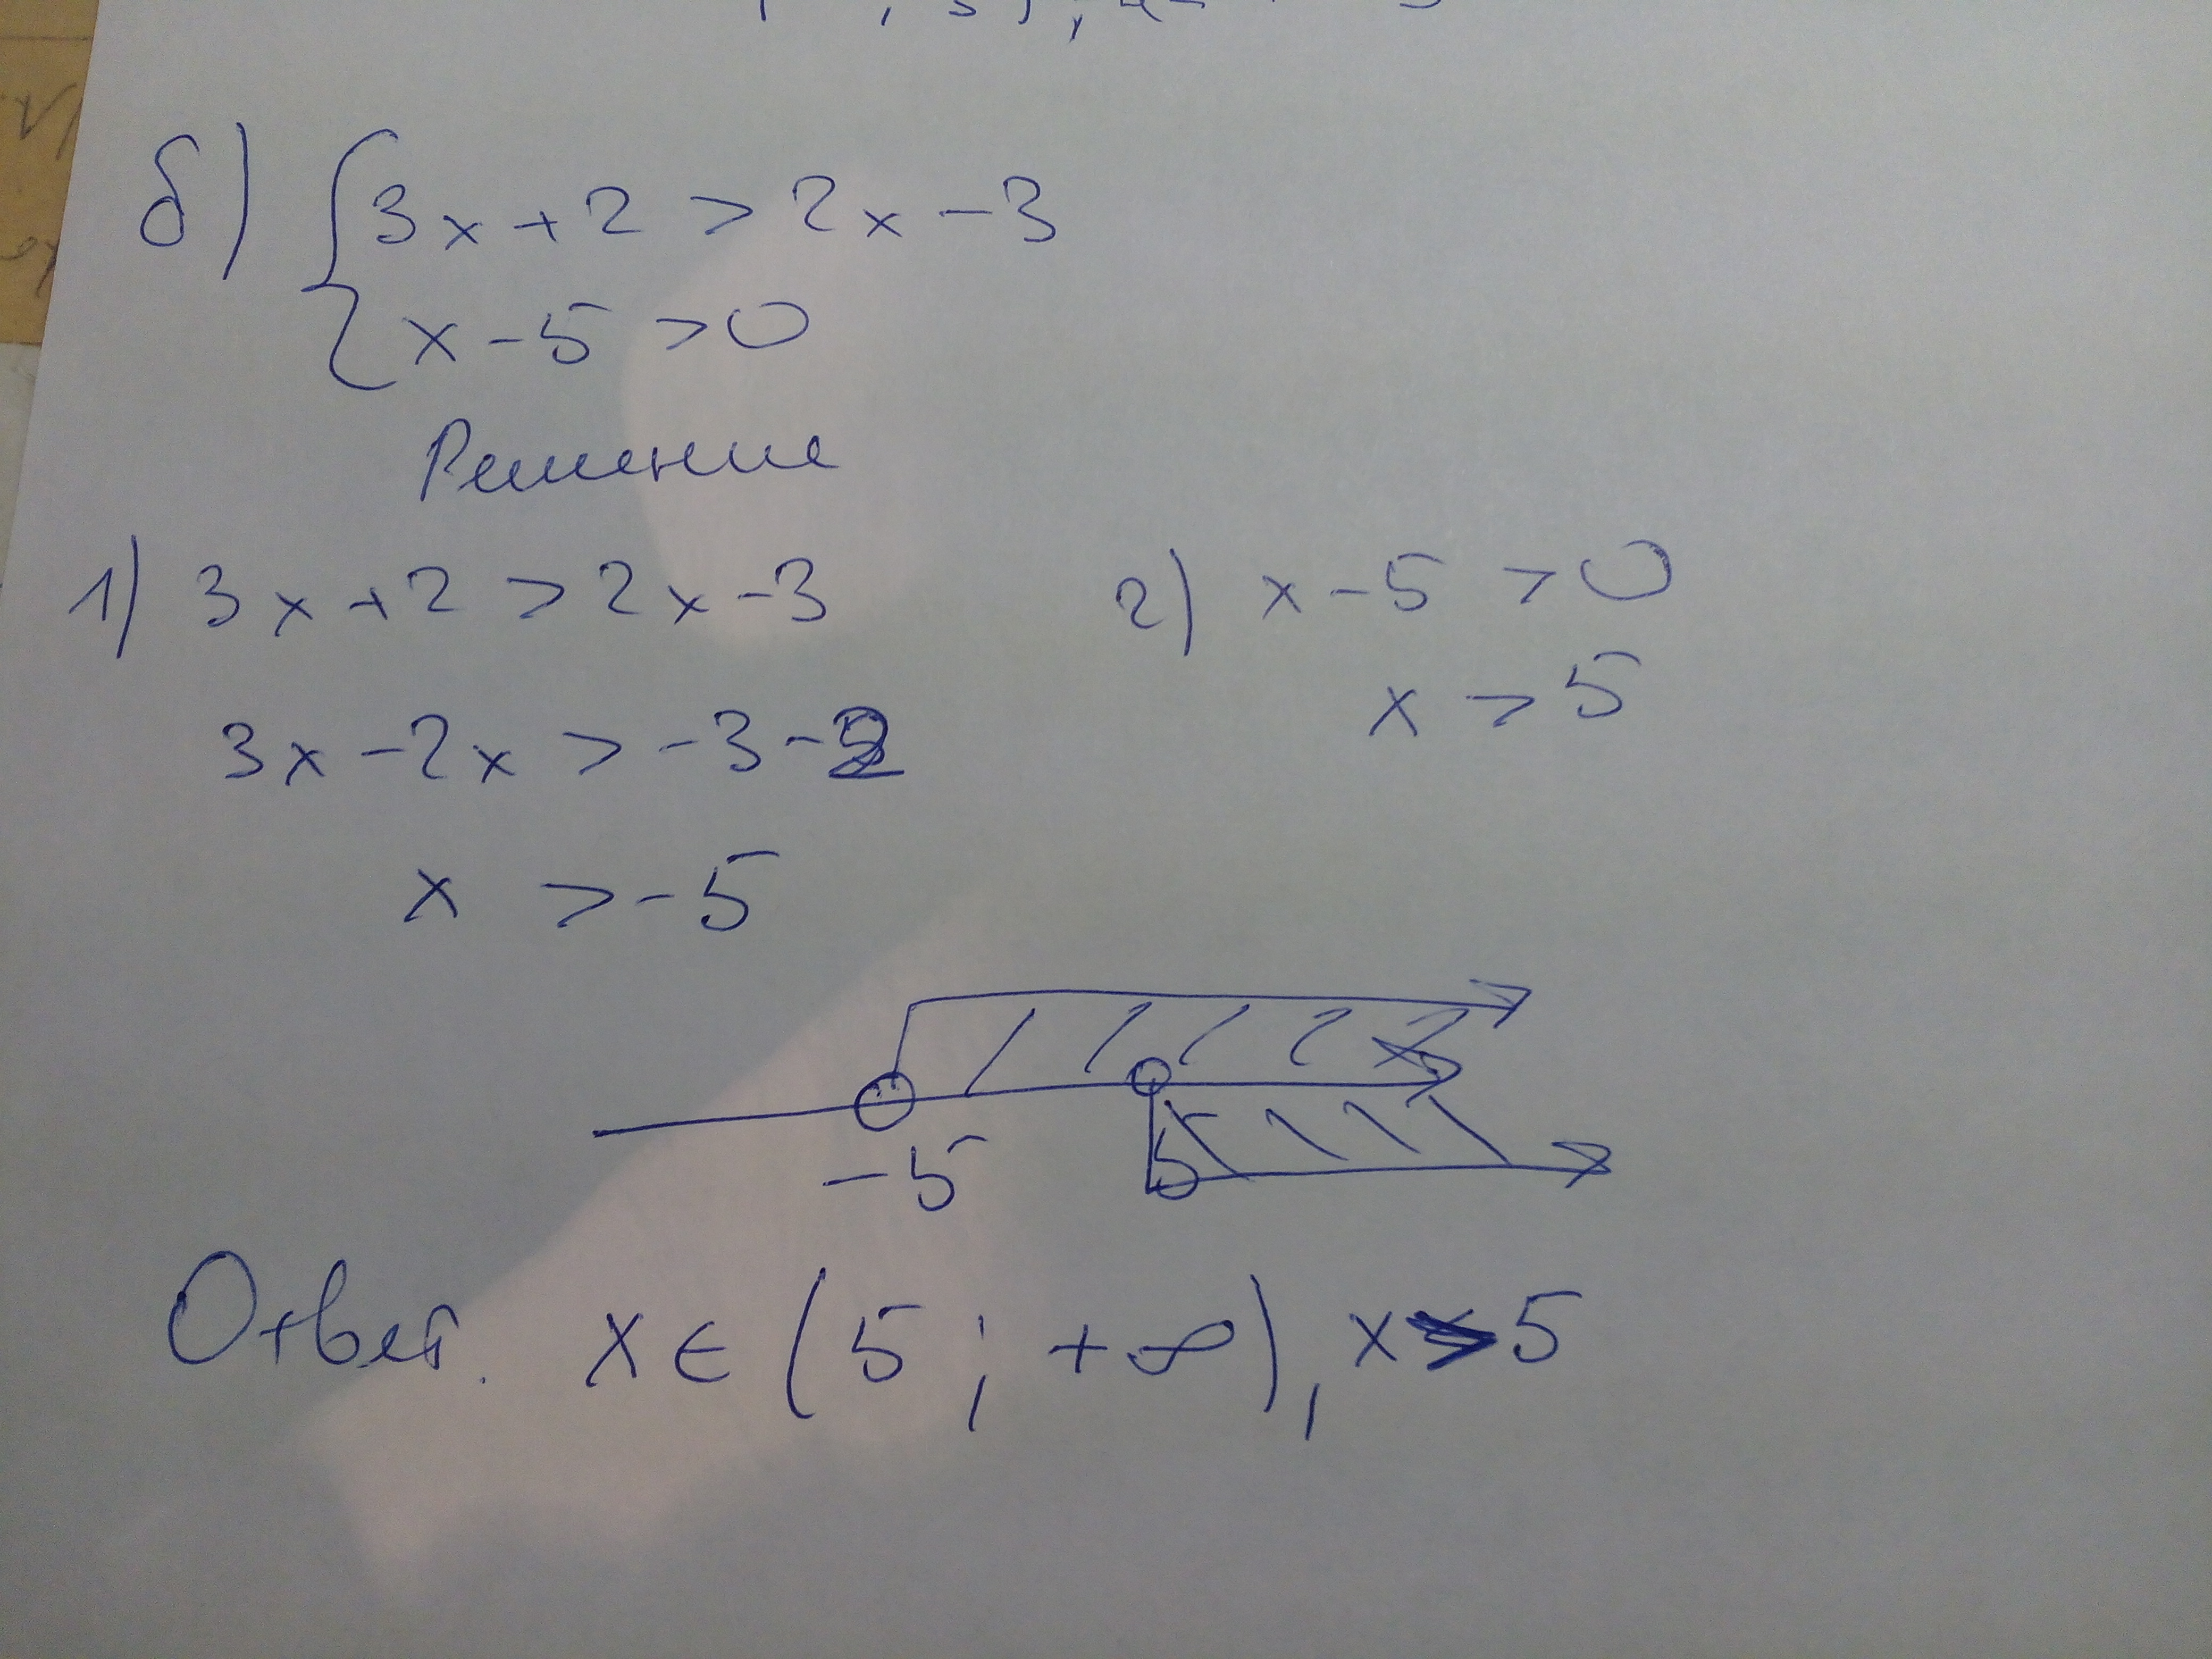 б) { 3x + 2 > 2x - 3
x - 5 > 0
Решение
1) 3x + 2 > 2x - 3
3x - 2x > -3 - 2
x > -5
2) x - 5 > 0
x > 5
-5 5
Ответ. x ∈ (5 ; +∞), x > 5